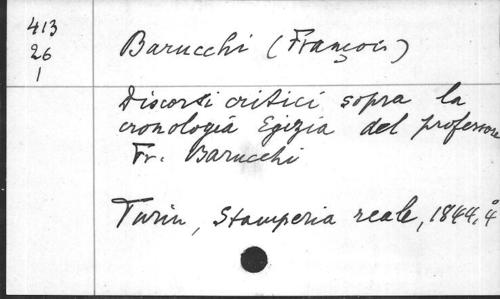 413
26
1
Barucchi (François)
Discorsi critici sopra la
cronologia Egizia del professore
Fr. Barucchi
Turin, Stamperia reale, 1844, 4°